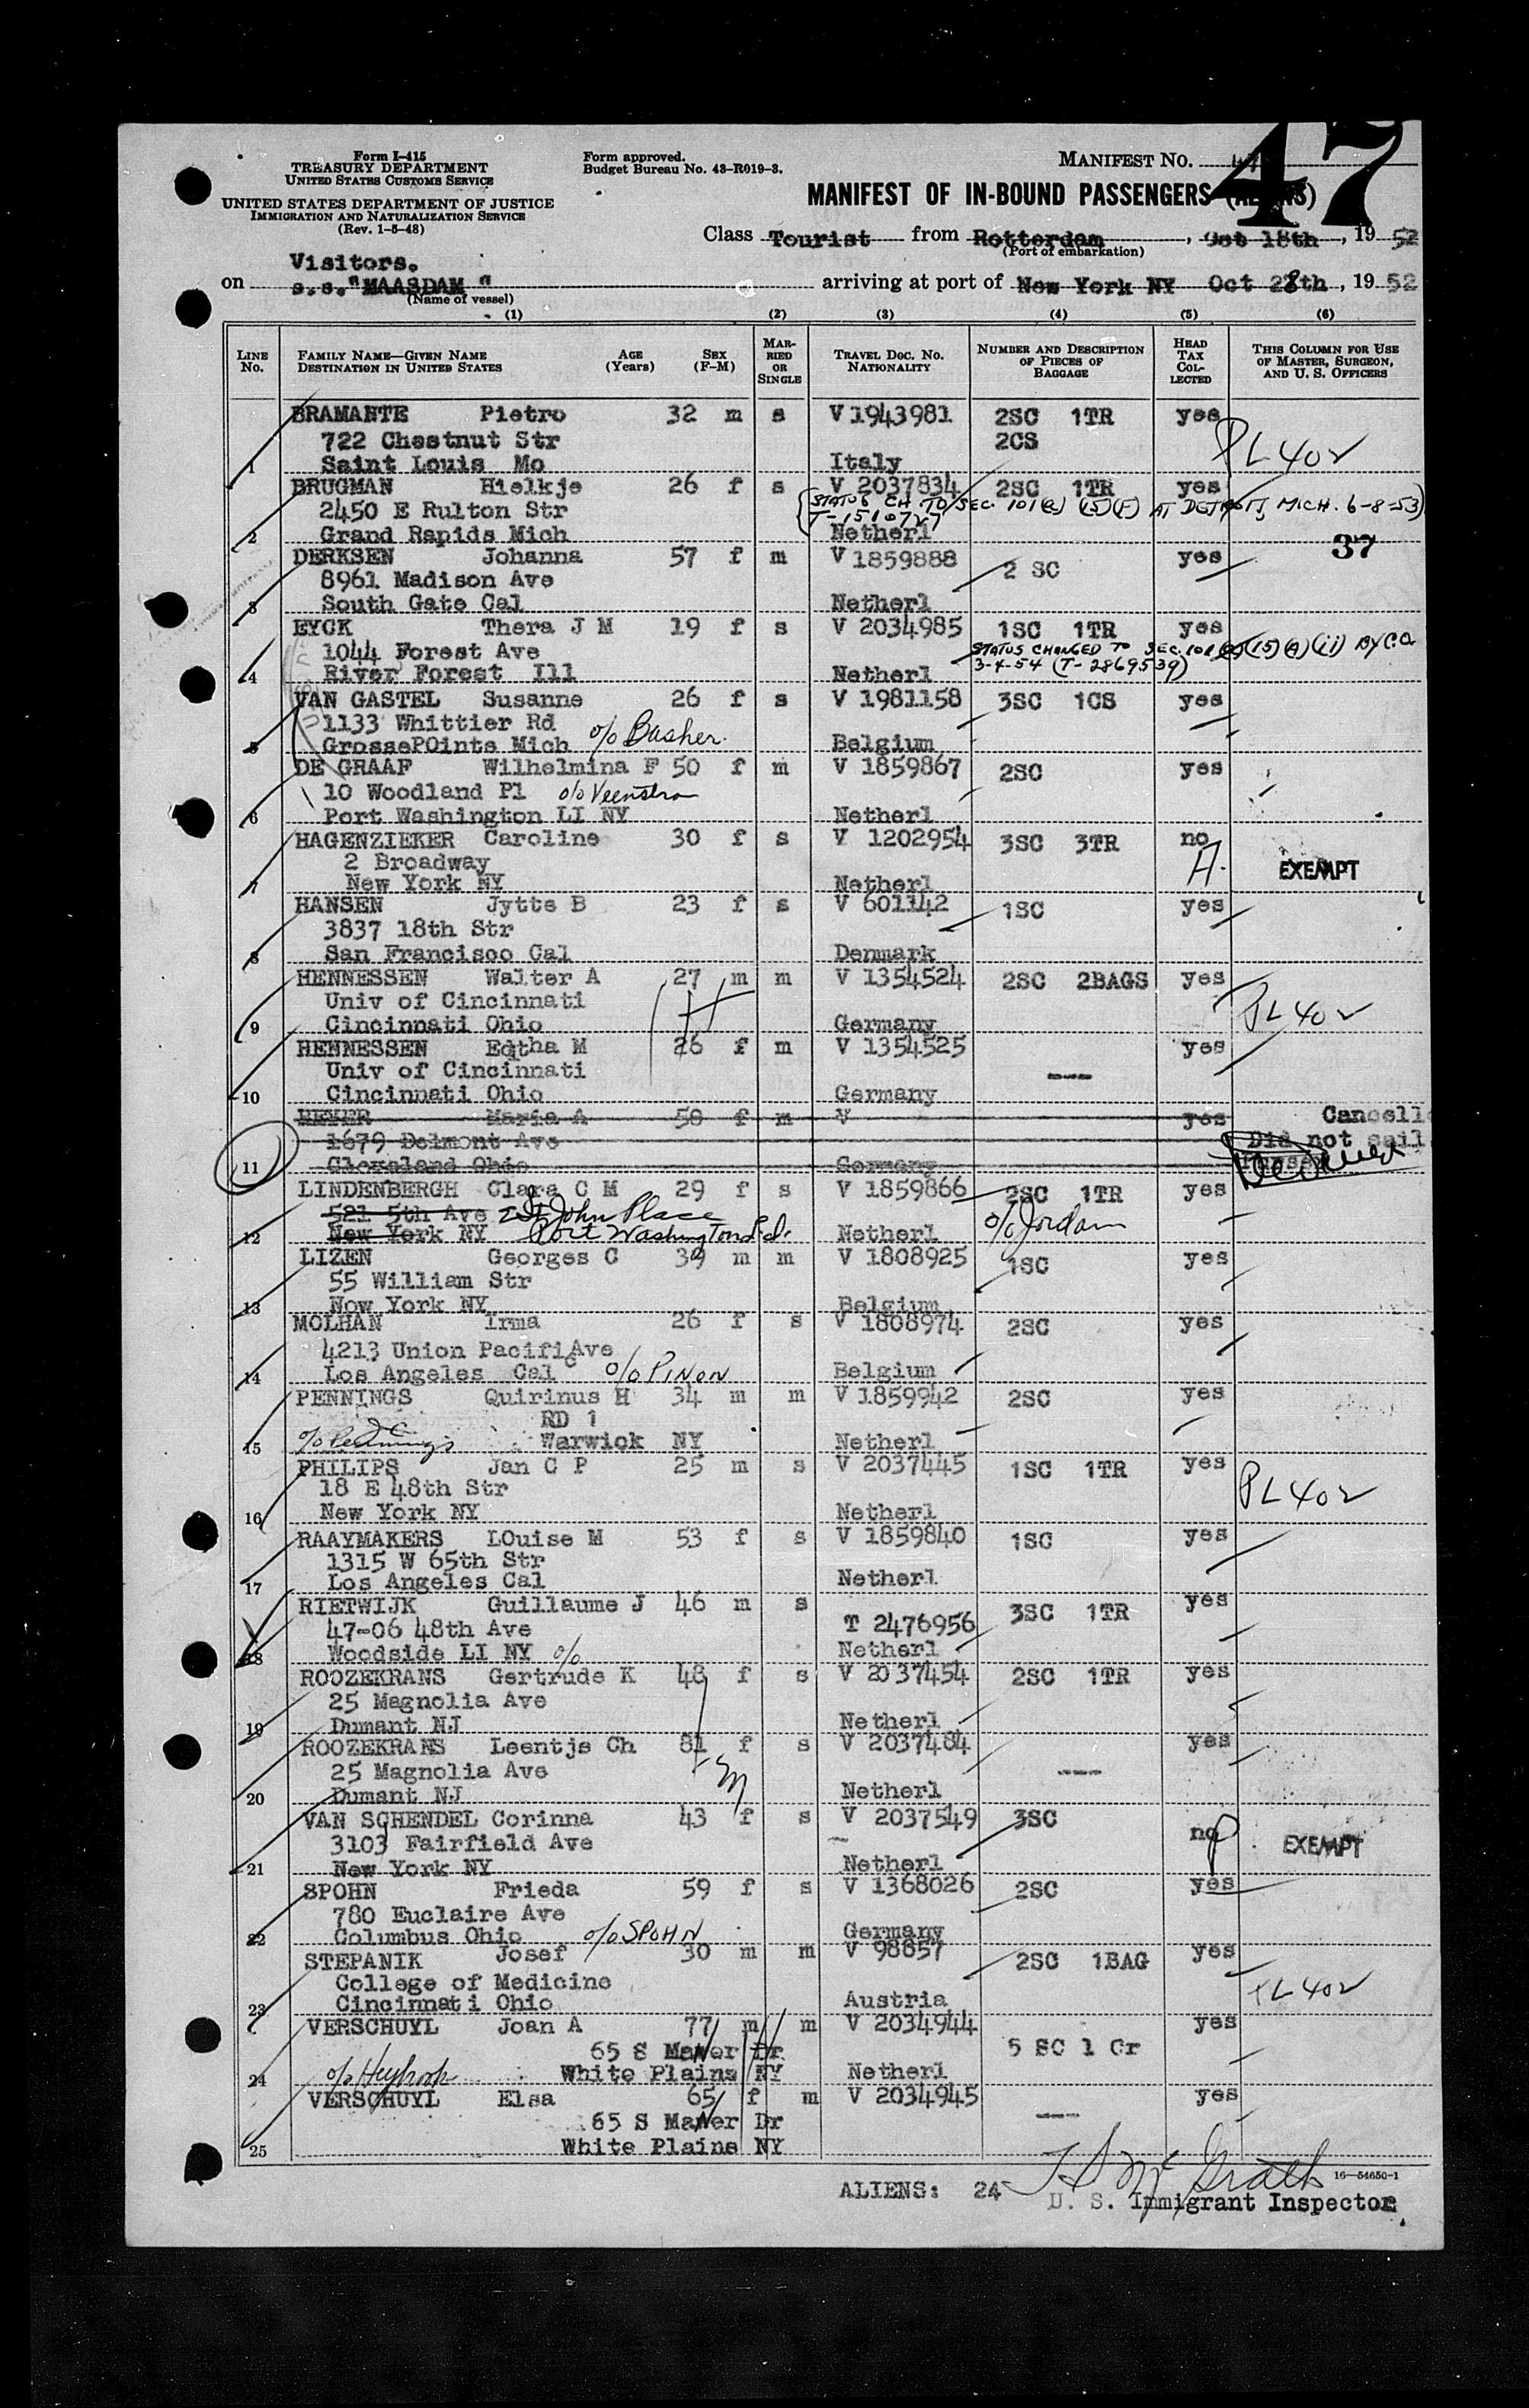 47
Form I-415
TREASURY DEPARTMENT
UNITED STATES CUSTOMS SERVICE
UNITED STATES DEPARTMENT OF JUSTICE
IMMIGRATION AND NATURALIZATION SERVICE
(Rev. 1-5-48)
Form approved.
Budget Bureau No. 43-R019-3.
MANIFEST NO. 47
MANIFEST OF IN-BOUND PASSENGERS (ALIENS)
Class Tourist from Rotterdam, Oct 18th, 1952
(Port of embarkation)
Visitors.
on s.s. "MAASDAM" arriving at port of New York NY Oct 28th, 1952
(Name of vessel)
(1) (2) (3) (4) (5) (6)
LINE No. FAMILY NAME—GIVEN NAME DESTINATION IN UNITED STATES AGE (Years) SEX (F-M) MARRIED OR SINGLE TRAVEL DOC. NO. NATIONALITY NUMBER AND DESCRIPTION OF PIECES OF BAGGAGE HEAD TAX COLLECTED THIS COLUMN FOR USE OF MASTER, SURGEON, AND U. S. OFFICERS
BRAMANTE Pietro 32 m s V 1943981 2SC 1TR yes
722 Chestnut Str 2CS PL 402
1 Saint Louis Mo Italy
BRUGMAN Hielkje 26 f s V 2037834 2SC 1TR yes
2450 E Rulton Str (STATUS CH TO SEC. 101(a) (15)(F) AT DETROIT, MICH. 6-8-53)
T-1510727
2 Grand Rapids Mich Netherl
DERKSEN Johanna 57 f m V 1859888 2 SC yes 37
8961 Madison Ave
3 South Gate Cal Netherl
EYCK Thera J M 19 f s V 2034985 1SC 1TR yes
1044 Forest Ave STATUS CHANGED TO SEC. 101(a)(15)(A)(ii) BY C.O.
3-4-54 (T-2869539)
4 River Forest Ill Netherl
VAN GASTEL Susanne 26 f s V 1981158 3SC 1CS yes
1133 Whittier Rd
5 GrossePOinte Mich c/o Basher. Belgium
DE GRAAF Wilhelmina F 50 f m V 1859867 2SC yes
10 Woodland Pl c/o Veenstra
6 Port Washington LI NY Netherl
HAGENZIEKER Caroline 30 f s V 1202954 3SC 3TR no
2 Broadway A. EXEMPT
7 New York NY Netherl
HANSEN Jytte B 23 f s V 601142 1SC yes
3837 18th Str
8 San Francisco Cal Denmark
HENNESSEN Walter A 27 m m V 1354524 2SC 2BAGS yes
Univ of Cincinnati PL 402
9 Cincinnati Ohio Germany
HENNESSEN Edtha M 26 f m V 1354525 --- yes
Univ of Cincinnati
10 Cincinnati Ohio Germany
HEYER Maria A 50 f m V yes Cancell
1679 Delmont Ave Did not sail
11 Cleveland Ohio Germany
LINDENBERGH Clara C M 29 f s V 1859866 2SC 1TR yes
521 5th Ave 2 St John Place c/o Jordam
12 New York NY Port Washington L.I. Netherl
LIZEN Georges C 39 m m V 1808925 1SC yes
55 William Str
13 New York NY Belgium
MOLHAN Irma 26 f s V 1808974 2SC yes
4213 Union Pacific Ave
14 Los Angeles Cal c/o PINON Belgium
PENNINGS Quirinus H 34 m m V 1859942 2SC yes
RD 1
15 c/o Pennings Warwick NY Netherl
PHILIPS Jan C P 25 m s V 2037445 1SC 1TR yes
18 E 48th Str PL 402
16 New York NY Netherl
RAAYMAKERS LOuise M 53 f s V 1859840 1SC yes
1315 W 65th Str
17 Los Angeles Cal Netherl
RIETWIJK Guillaume J 46 m s T 2476956 3SC 1TR yes
47-06 48th Ave
18 Woodside LI NY c/o Netherl
ROOZEKRANS Gertrude K 48 f s V 2037454 2SC 1TR yes
25 Magnolia Ave
19 Dumant NJ Netherl
ROOZEKRANS Leentje Ch 81 f s V 2037484 --- yes
25 Magnolia Ave
20 Dumant NJ Netherl
VAN SCHENDEL Corinna 43 f s V 2037549 3SC no
3103 Fairfield Ave EXEMPT
21 New York NY Netherl
SPOHN Frieda 59 f s V 1368026 2SC yes
780 Euclaire Ave
22 Columbus Ohio c/o SPOHN Germany
STEPANIK Josef 30 m m V 98657 2SC 1BAG yes
College of Medicine PL 402
23 Cincinnati Ohio Austria
VERSCHUYL Joan A 77 m m V 2034944 5 SC 1 Cr yes
65 S Maner Dr
24 White Plains NY Netherl
VERSCHUYL Elsa 65 f m V 2034945 --- yes
65 S Maner Dr
25 White Plains NY
ALIENS: 24
U. S. Immigrant Inspector
16—54650-1